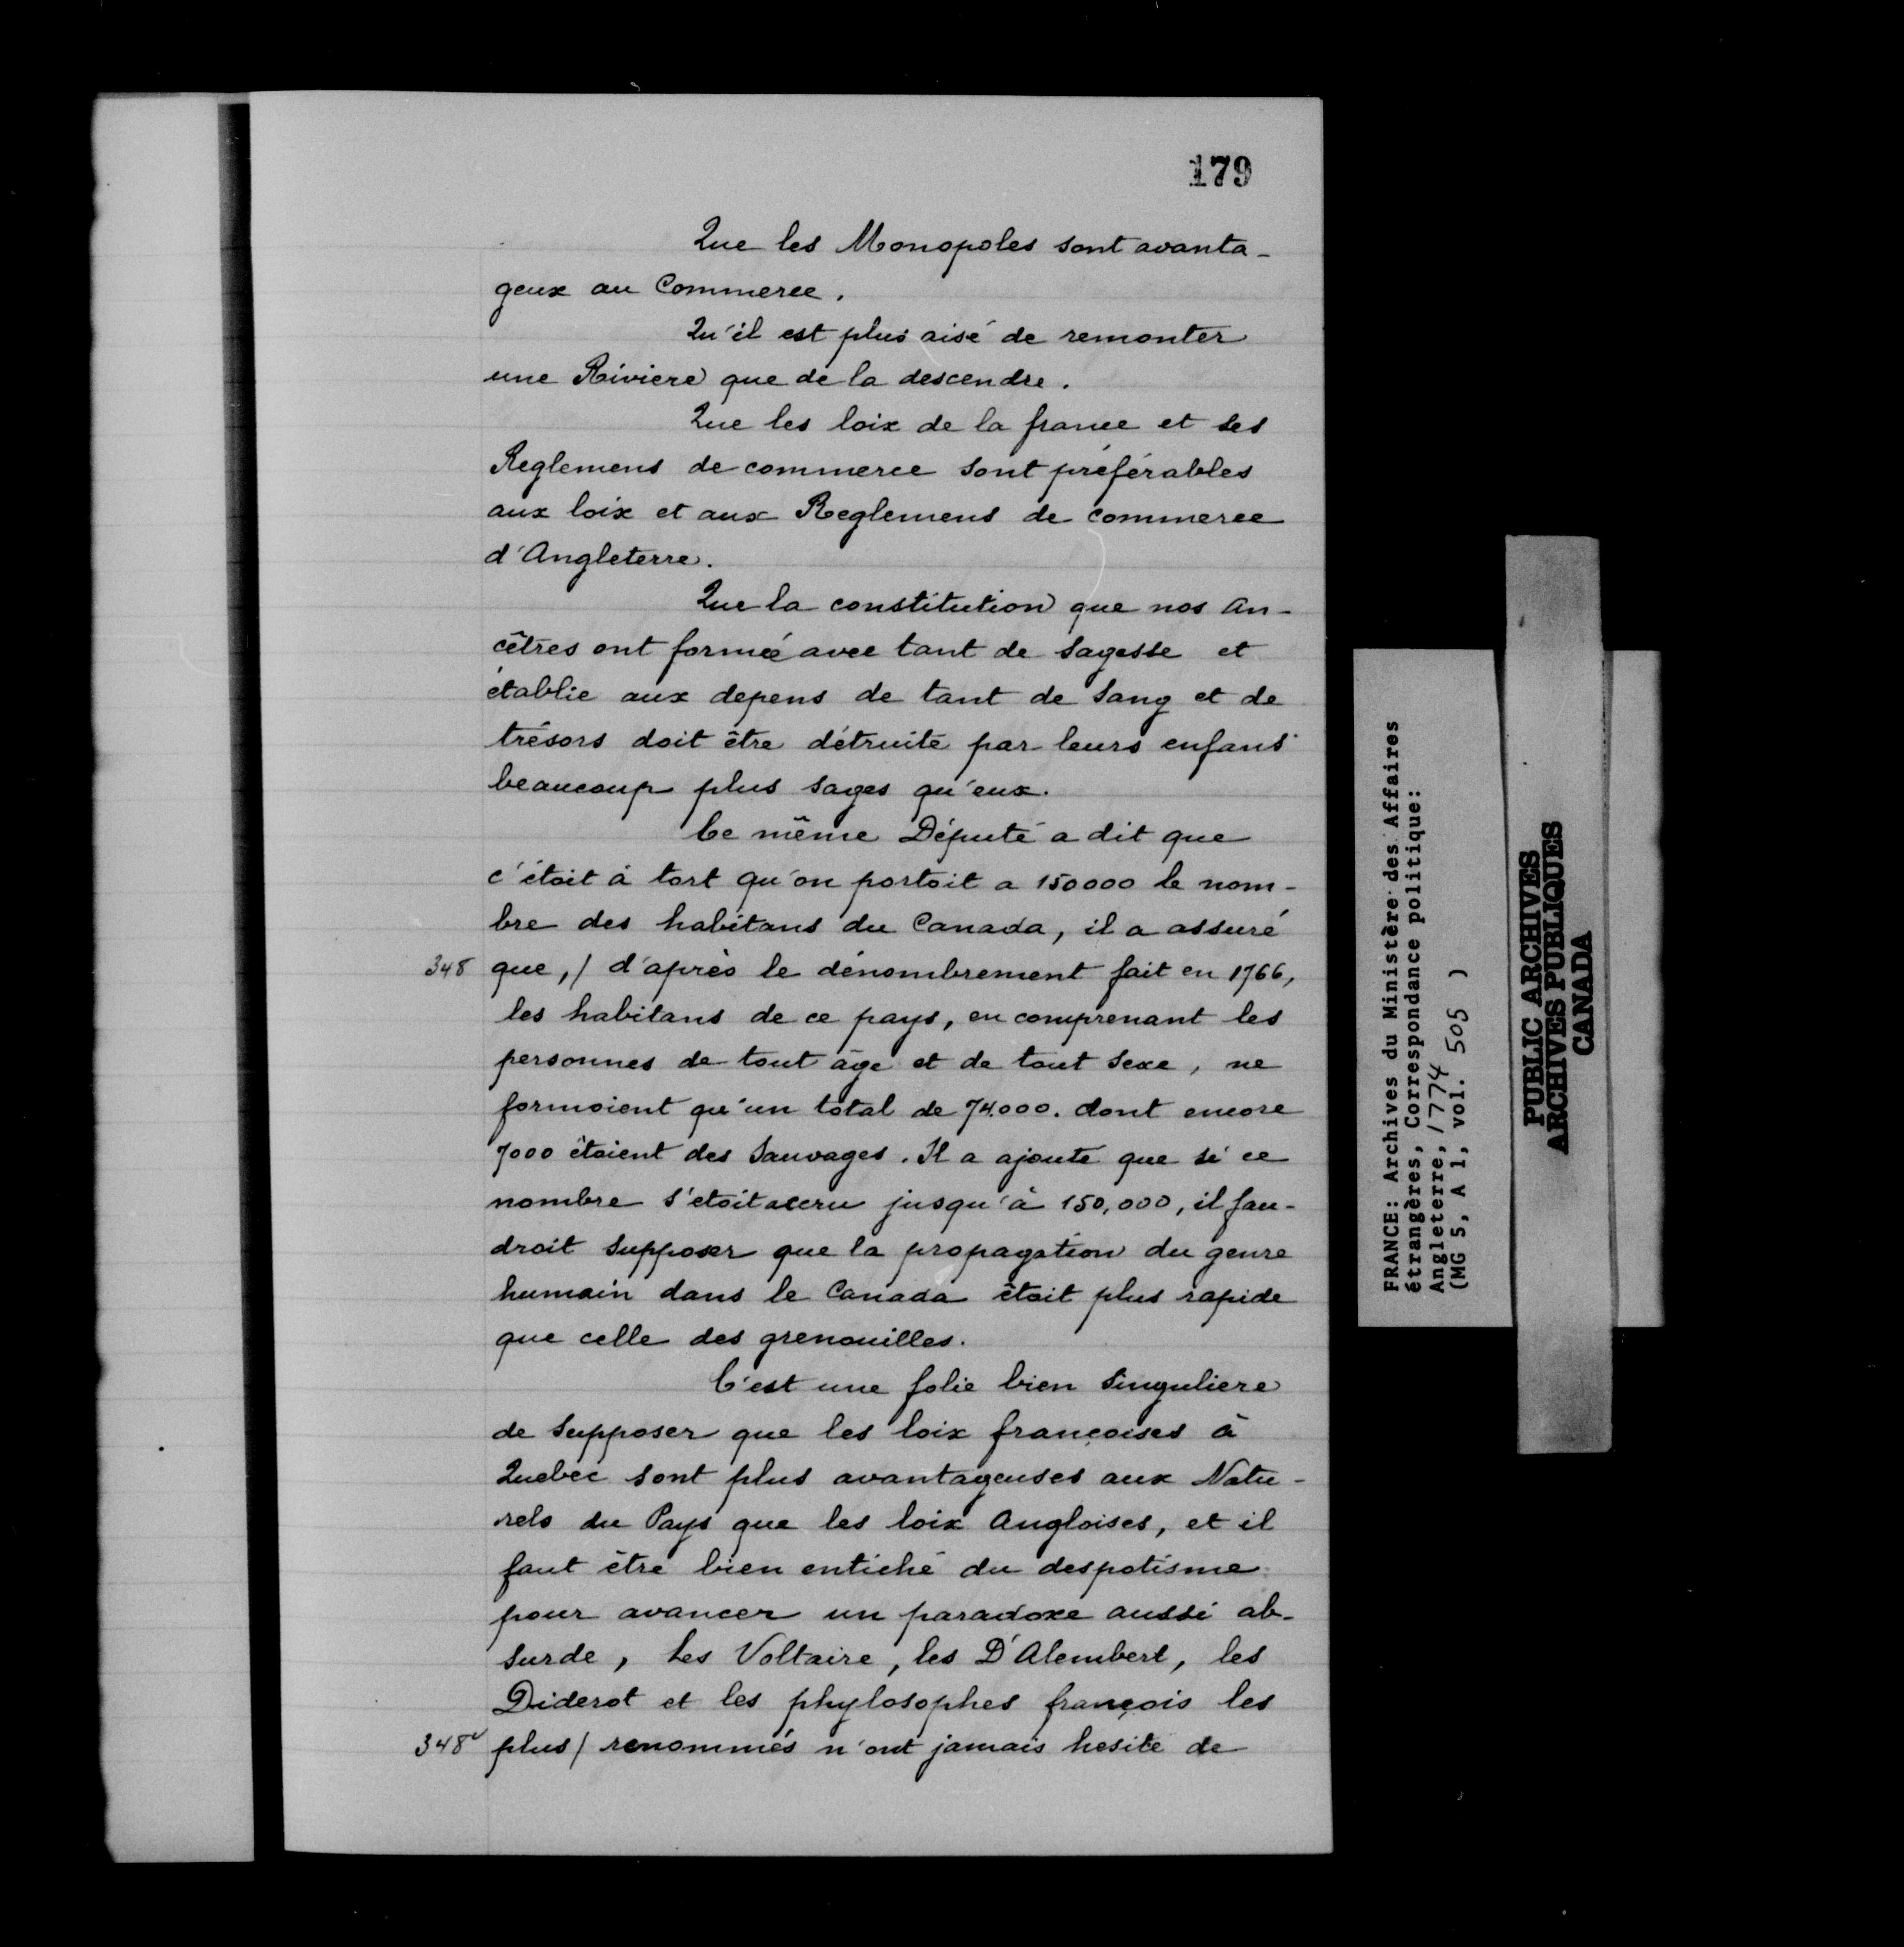 179
Que les Monopoles sont avanta-
geux au Commerce.
Qu'il est plus aisé de remonter
une Riviere que de la descendre.
Que les loix de la france et ses
Reglemens de commerce sont préférables
aux loix et aux Reglemens de commerce
d'Angleterre.
Que la constitution que nos an-
cêtres ont formée avec tant de sagesse et
établie aux depens de tant de sang et de
trésors doit être détruite par leurs enfans
beaucoup plus sages qu'eux.
Ce même Député a dit que
c'étoit à tort qu'on portoit a 150000 le nom-
bre des habitans du Canada, il a assuré
348 que, / d'après le dénombrement fait en 1766,
les habitans de ce pays, en comprenant les
personnes de tout âge et de tout sexe, ne
formoient qu'un total de 74.000. dont encore
7000 étoient des Sauvages. Il a ajouté que si ce
nombre s'etoit accru jusqu'à 150,000, il fau-
droit supposer que la propagation du genre
humain dans le Canada étoit plus rapide
que celle des grenouilles.
C'est une folie bien singuliere
de supposer que les loix françoises à
Quebec sont plus avantageuses aux Natu-
rels du Pays que les loix Angloises, et il
faut être bien entiché du despotisme
pour avancer un paradoxe aussi ab-
surde, Les Voltaire, les D'Alembert, les
Diderot et les phylosophes françois les
348v plus / renommés n'ont jamais hesité de
FRANCE: Archives du Ministère des Affaires
étrangères, Correspondance politique:
Angleterre, 1774
(MG 5, A 1, vol. 505 )
PUBLIC ARCHIVES
ARCHIVES PUBLIQUES
CANADA